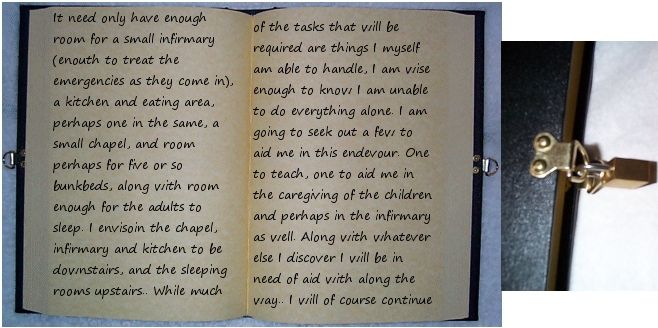 It need only have enough
room for a small infirmary
(enouth to treat the
emergencies as they come in),
a kitchen and eating area,
perhaps one in the same, a
small chapel, and room
perhaps for five or so
bunkbeds, along with room
enough for the adults to
sleep. I envisoin the chapel,
infirmary and kitchen to be
downstairs, and the sleeping
rooms upstairs.. While much
of the tasks that will be
required are things I myself
am able to handle, I am wise
enough to know I am unable
to do everything alone. I am
going to seek out a few to
aid me in this endevour. One
to teach, one to aid me in
the caregiving of the children
and perhaps in the infirmary
as well. Along with whatever
else I discover I will be in
need of aid with along the
way.. I will of course continue